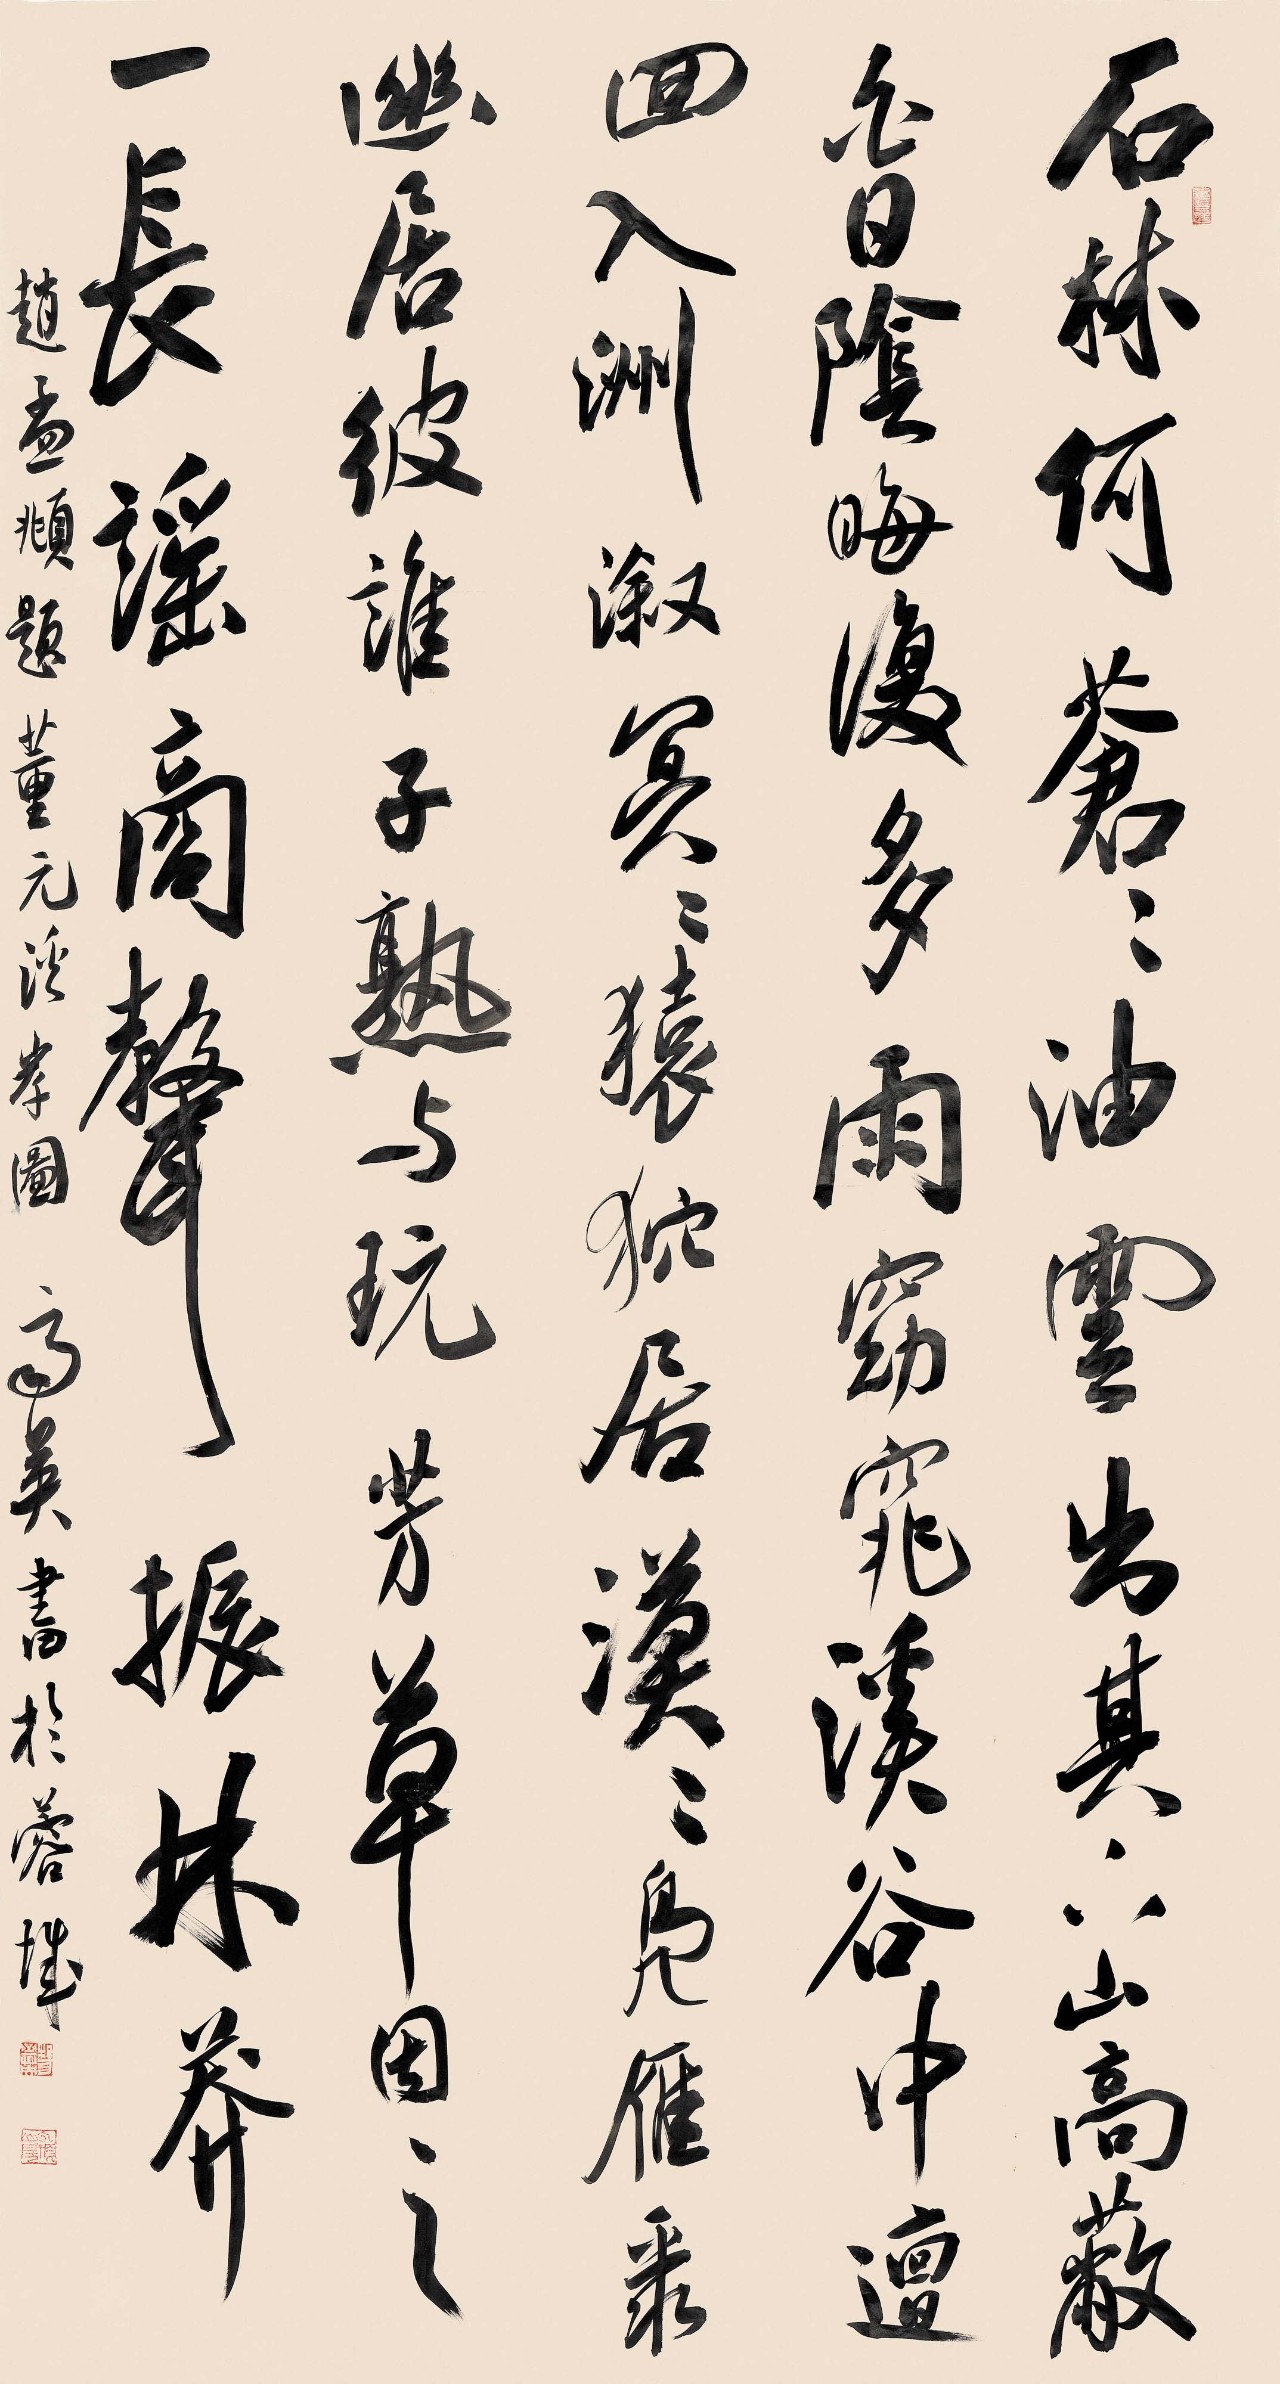 石林何蒼〻油雲出其下山高蔽
白日陰晦復多雨窈窕溪谷中邅
回入洲溆冥〻猿狖居漠〻鳧雁聚
幽居彼誰子孰与玩芳草因之
一長謡商聲振林莽
趙孟頫題董元溪岸圖 高英書於蓉城